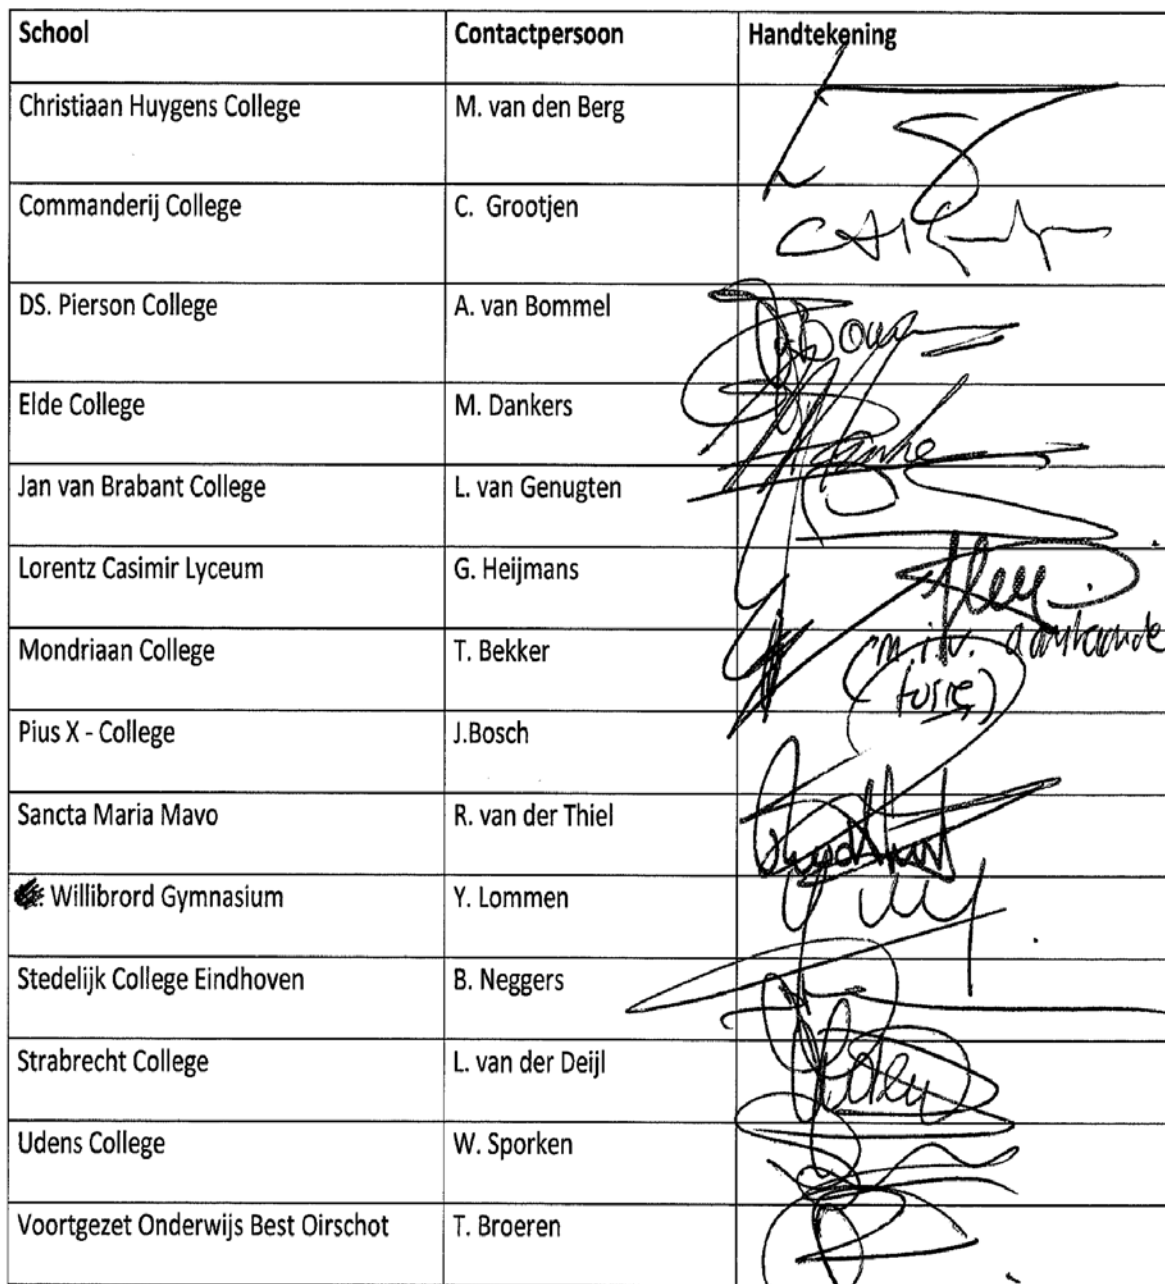 School Contactpersoon Handtekening
Christiaan Huygens College M. van den Berg
Commanderij College C. Grootjen
DS. Pierson College A. van Bommel
Elde College M. Dankers
Jan van Brabant College L. van Genugten
Lorentz Casimir Lyceum G. Heijmans
Mondriaan College T. Bekker
(m.i.v.
fusie)
Pius X - College J.Bosch
Sancta Maria Mavo R. van der Thiel
Willibrord Gymnasium Y. Lommen
Stedelijk College Eindhoven B. Neggers
Strabrecht College L. van der Deijl
Udens College W. Sporken
Voortgezet Onderwijs Best Oirschot T. Broeren